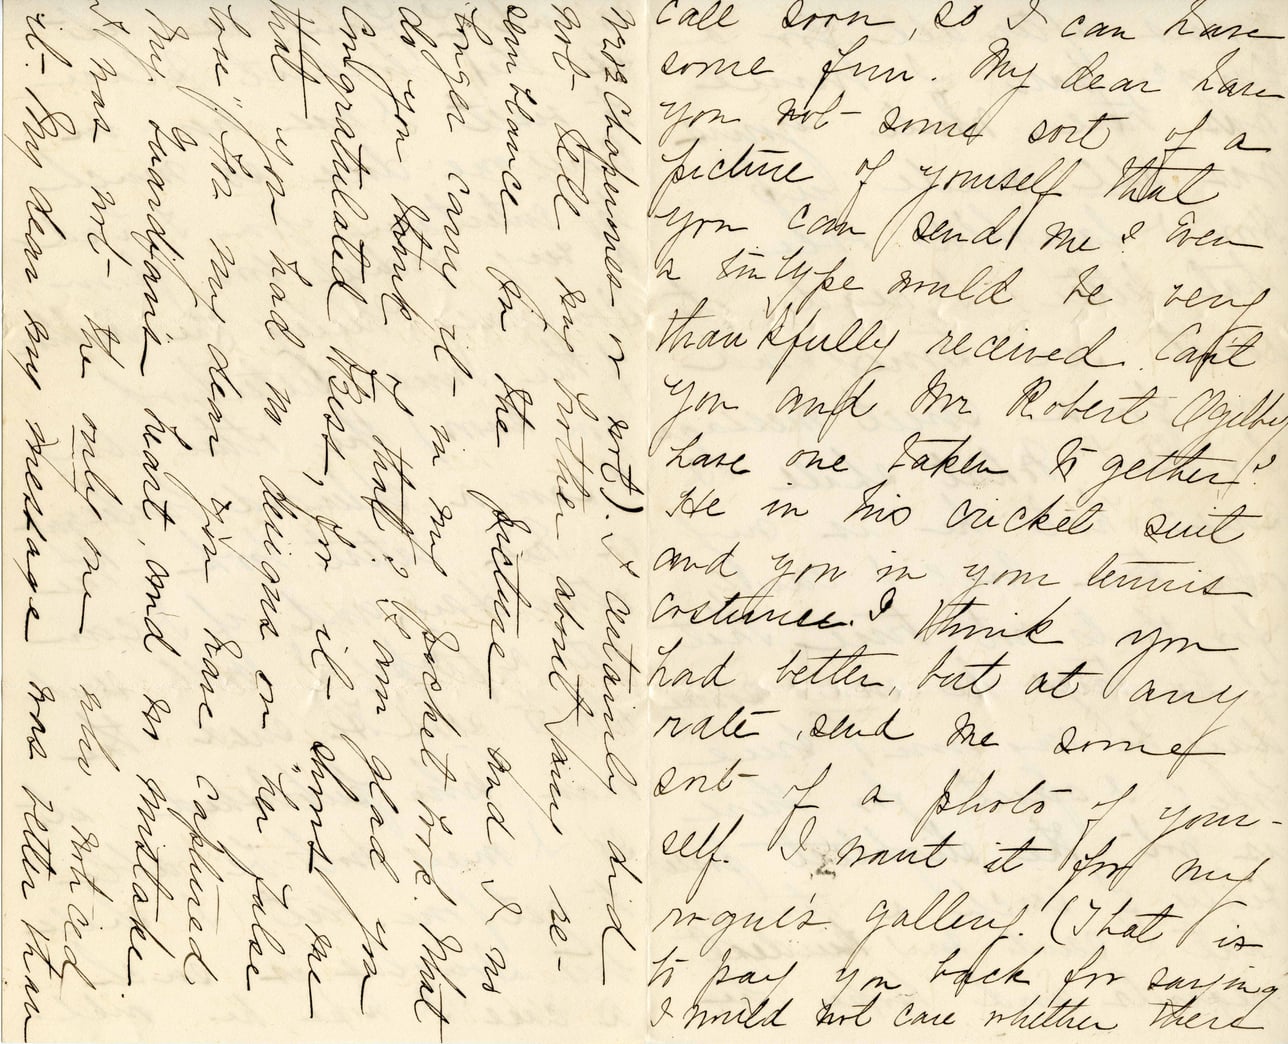 call soon, so I can have
some fun. My dear have
you not some sort of a
picture of yourself that
you can send me? Even
a tintype would be very
thankfully received. Can't
you and Mr Robert Ogilby
have one taken together?
He in his cricket suit
and you in your tennis
costume. I think you
had better, but at any
rate send me some
sort of a photo of your-
self. I want it for my
rogue's gallery. (That is
to pay you back for saying
I would not care whether there
were Chaperones or not). I certainly did
not tell my brother about his re-
semblance in the picture and I no
longer carry it in my pocket book. What
do you think of that? I am glad you
Congratulated Bess, for it shows me
that you had no designs on "her false
love", for my dear you have captured
my Guardians heart, and no mistake
it was not the only one who noticed
it. My dear my message was better than